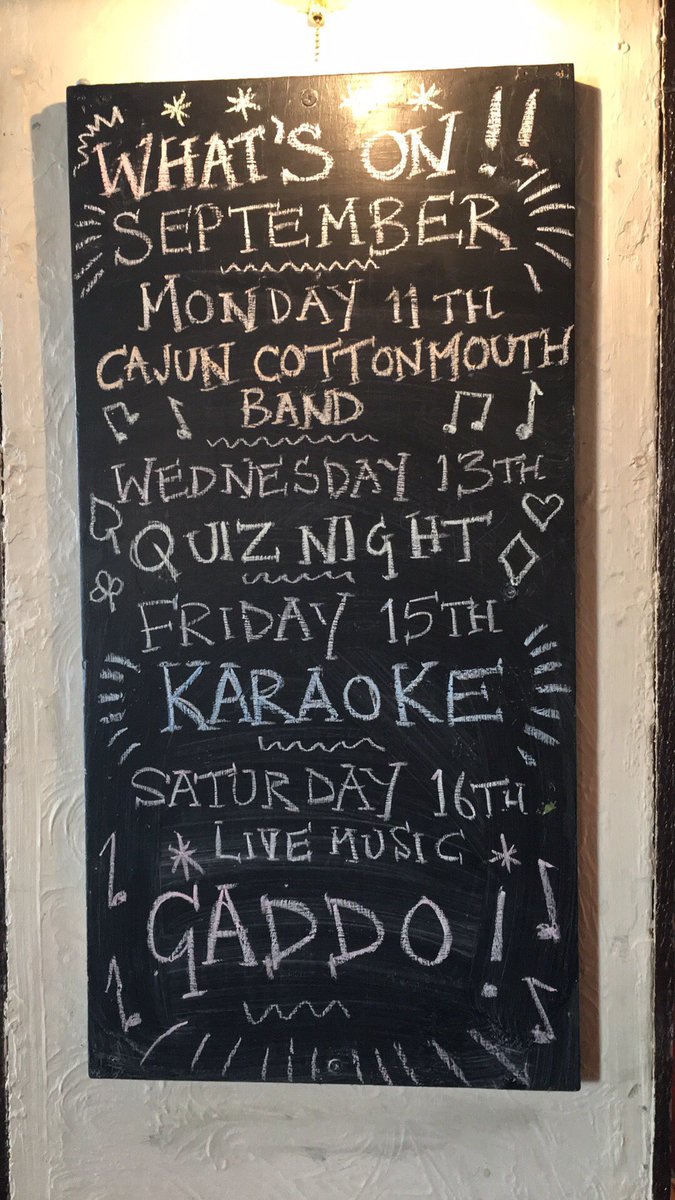 WHAT'S ON!!
SEPTEMBER
MONDAY 11TH
CAJUN COTTONMOUTH
BAND
WEDNESDAY 13TH
QUIZ NIGHT
FRIDAY 15TH
KARAOKE
SATURDAY 16TH
LIVE MUSIC
GADDO!